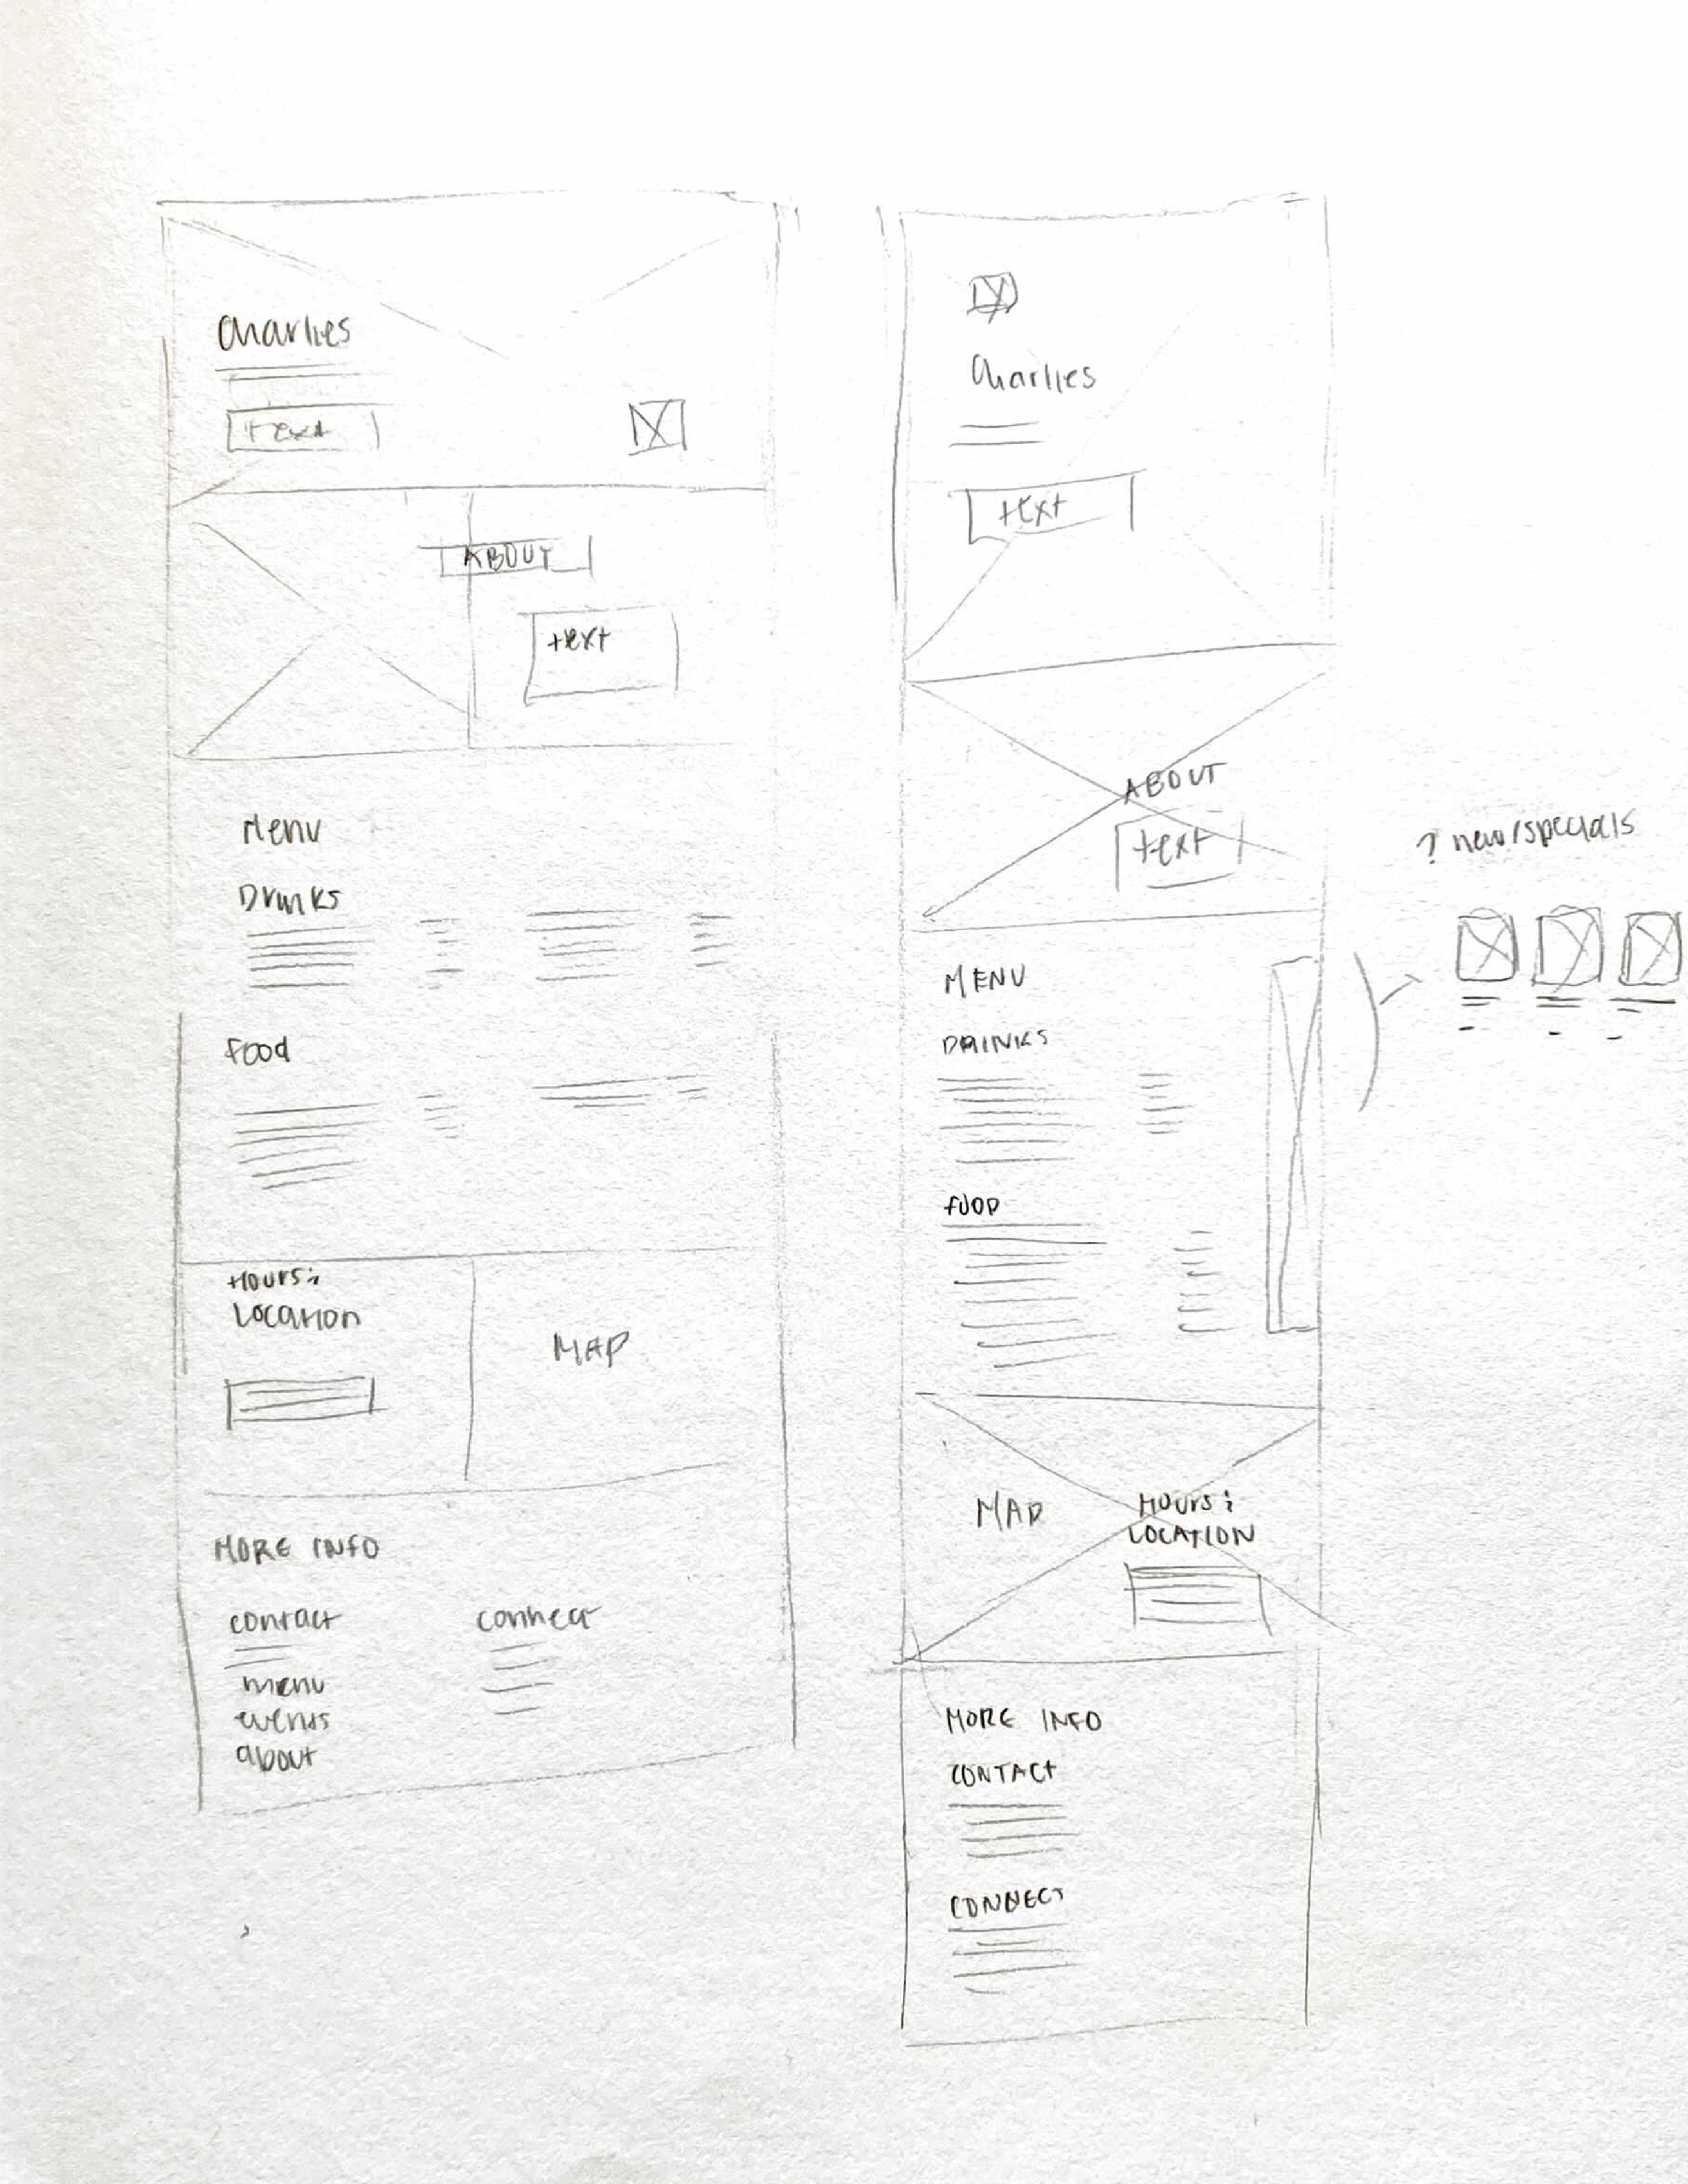 Charlies
text
ABOUT
text
Menu
Drinks
Food
Hours &
Location
MAP
MORE INFO
contact
connect
menu
events
about
Charlies
text
ABOUT
text
MENU
DRINKS
FOOD
MAP
HOURS &
LOCATION
MORE INFO
CONTACT
CONNECT
? new/specials